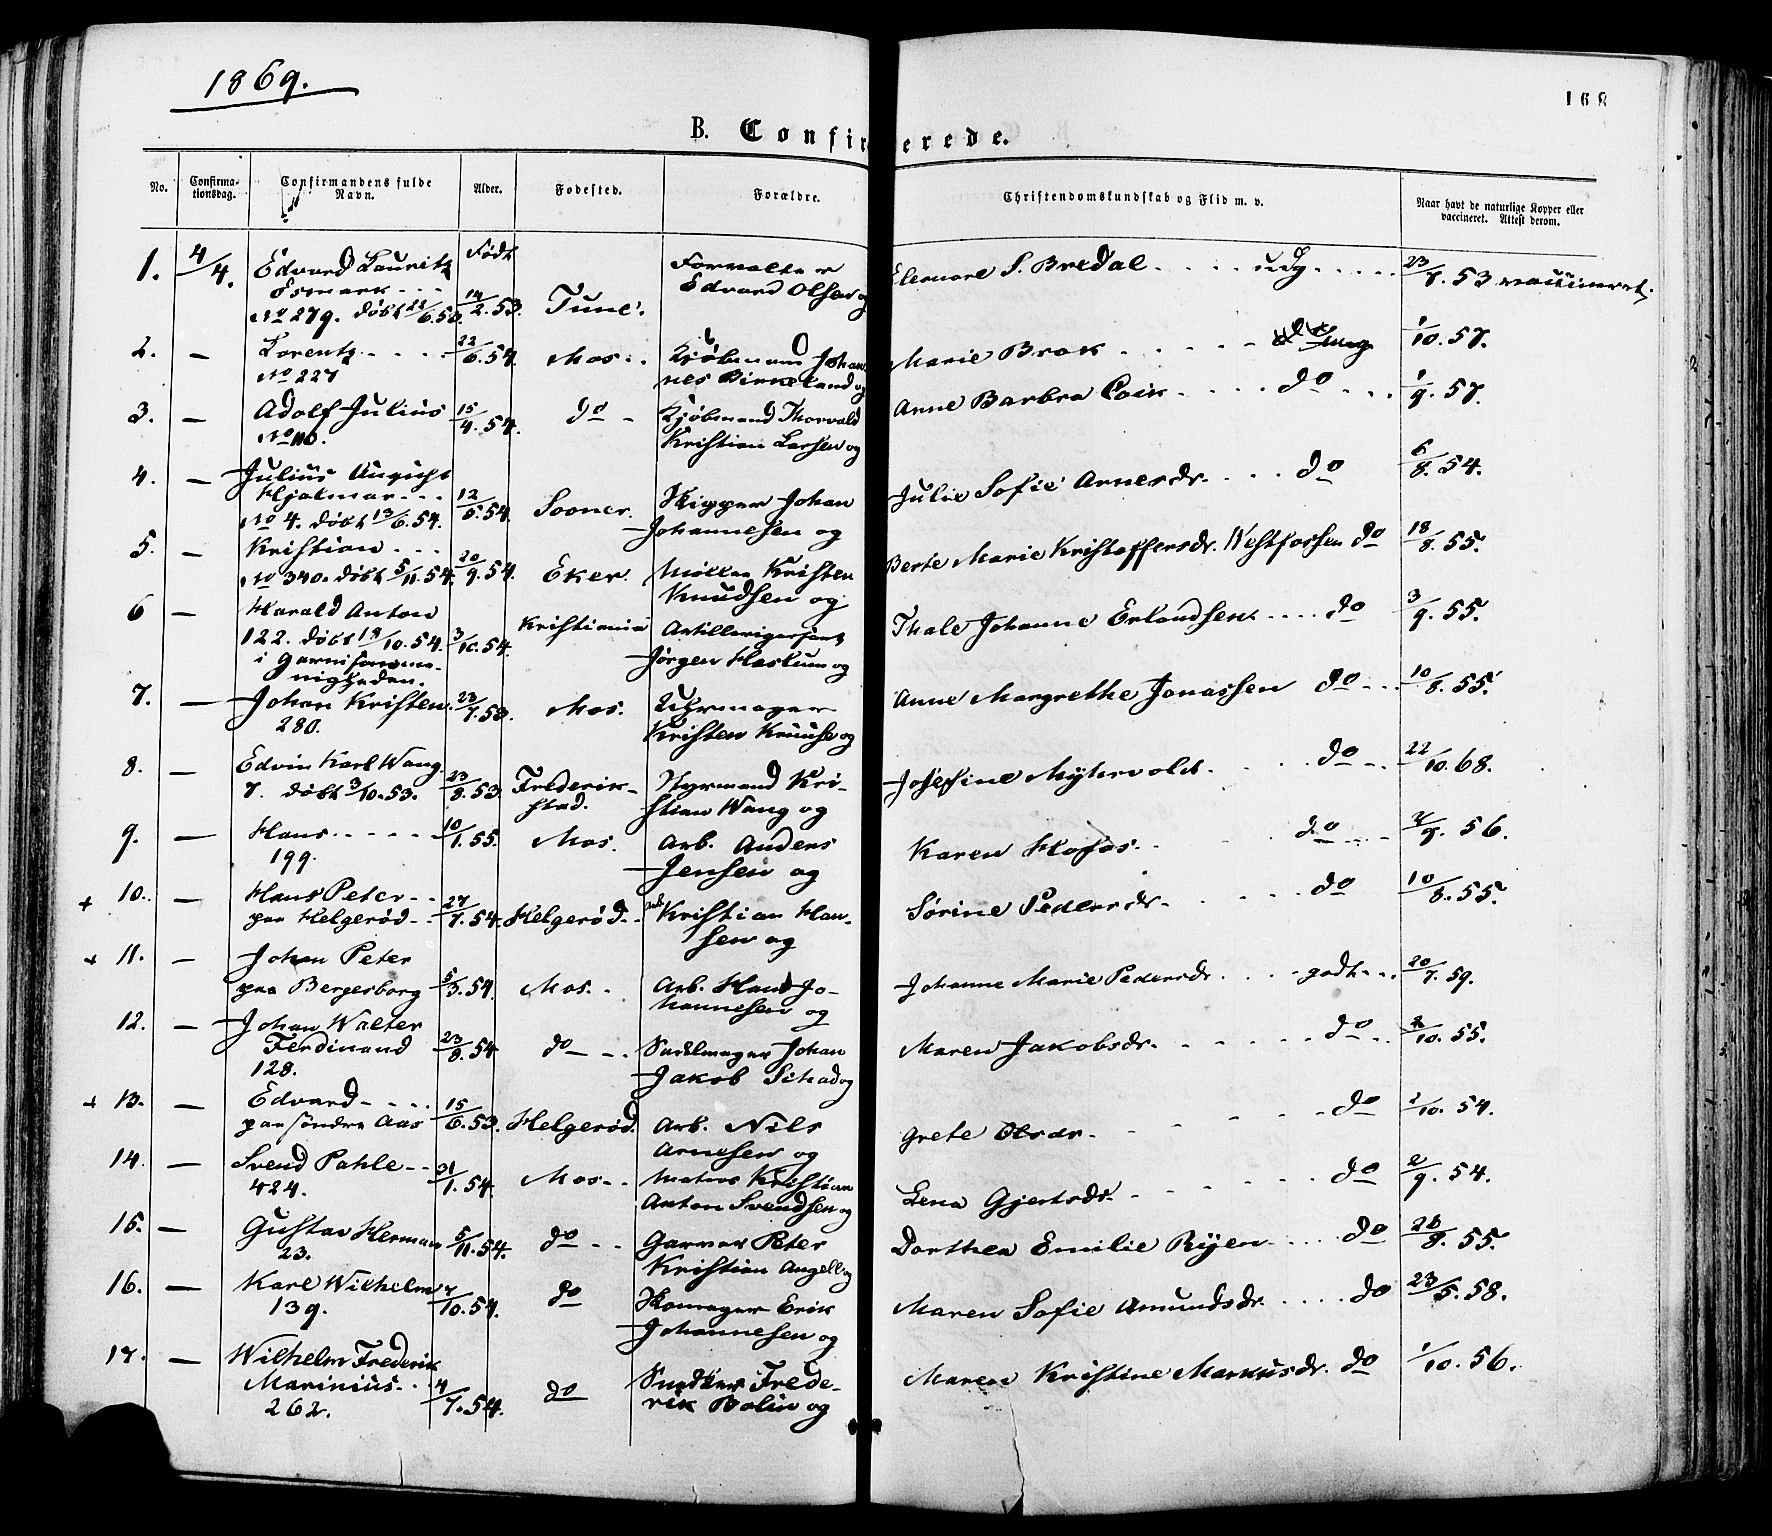 1869.
168
B. Confir erede.
No. Confirma-tionsdag. Confirmandens fulde Navn. Alder. Fødested. Forældre. Christendomskundskab og Flid m. v. Naar havt de naturlige Kopper eller vaccineret. Attest derom.
Født
1. 4/4. Edvard Lauritz Forvalter Elenore S. Bredal udg 23/7. 53 vaccineret.
Esmark Edvard Olsen og
No 279. døbt 14/2. 53. Tune.
2. — Lorentz 22/6. 54. Mos. Kjøbmand Johan- Marie Brok 1/10. 57.
No 227 nes Birkeland og
3. — Adolf Julius 15/4. 54. do Kjøbmand Thorvald Anne Barbra do 1/9. 57.
No 110. Kristian Larsen og
4. — Julius August
Hjalmar 12/5. 54. Sooner. Skipper Johan Julie Sofie Arnesdr. do 6/8. 54.
No 4. døbt 13/6. 54. Johannesen og
5. — Kristian 20/9. 54. Eker. Møller Kristen Berte Marie Kristoffersdr. Westfossen do 18/8. 55.
No 340. døbt 5/11. 54. Knudsen og
6 — Harald Anton Kristiania Artillerigersjant Thale Johanne Erlandsen do 3/9. 55.
122. døbt 19/10. 54. 3/10. 54. Jørgen Haslum og
i Garnisonsme-
nigheden.
7. — Johan Kristen 23/7. 53. Mos. Uhrmager Anne Margrethe Jonassen do 10/8. 55.
280. Kristen Kruuse og
8. — Edvin Karl Wang 23/8. 53. Frederik- Styrmand Kri- Josefine Myhrvold do 22/10. 68.
7. døbt 3/10. 53. stad. stian Wang og
9. — Hans 10/1. 55. Mos. Arb. Anders Karen Hofos do 56.
199. Jensen og
+ 10. — Hans Peter
paa Helgerød 27/7. 54. Helgerød Kristian Han- Sørine Pedersdr. do 10/8. 55.
sen og
+ 11. — Johan Peter
paa Bergersborg 5/3. 54. Mos. Arb. Hans Jo- Johanne Marie Pedersdr. godt 20/7. 59.
hannesen og
12. — Johan Walter
Ferdinand 23/8. 54 do Sadelmager Johan Maren Jakobsdr. do 2/10. 55.
128. Jakob Schad og
+ 13. — Edvard 15/6. 53. Helgerød. Arb. Nils Grete Olsdr. do 2/10. 54.
paa søndre Aas Arnesen og
14. — Svend Pahle 31/1. 54. Mos. Matros Kristian Lena Gjertsdr. do 2/9. 54.
424. Anton Svendsen og
15. — Gustav Herman 5/11. 54. do Garver Peter Dorthea Emilie Ryen do 26/8. 55.
23. Kristian Angell og
16. — Karl Wilhelm 7/10. 54. do Skomager Erik Maren Sofie Amundsdr. do 23/5. 58.
139. Johannesen og
17. — Wilhelm Frederik
Marinius 4/7. 54. do Snedker Frede- Maren Kristine Markusdr. do 1/10. 56.
262. rik Bolin og